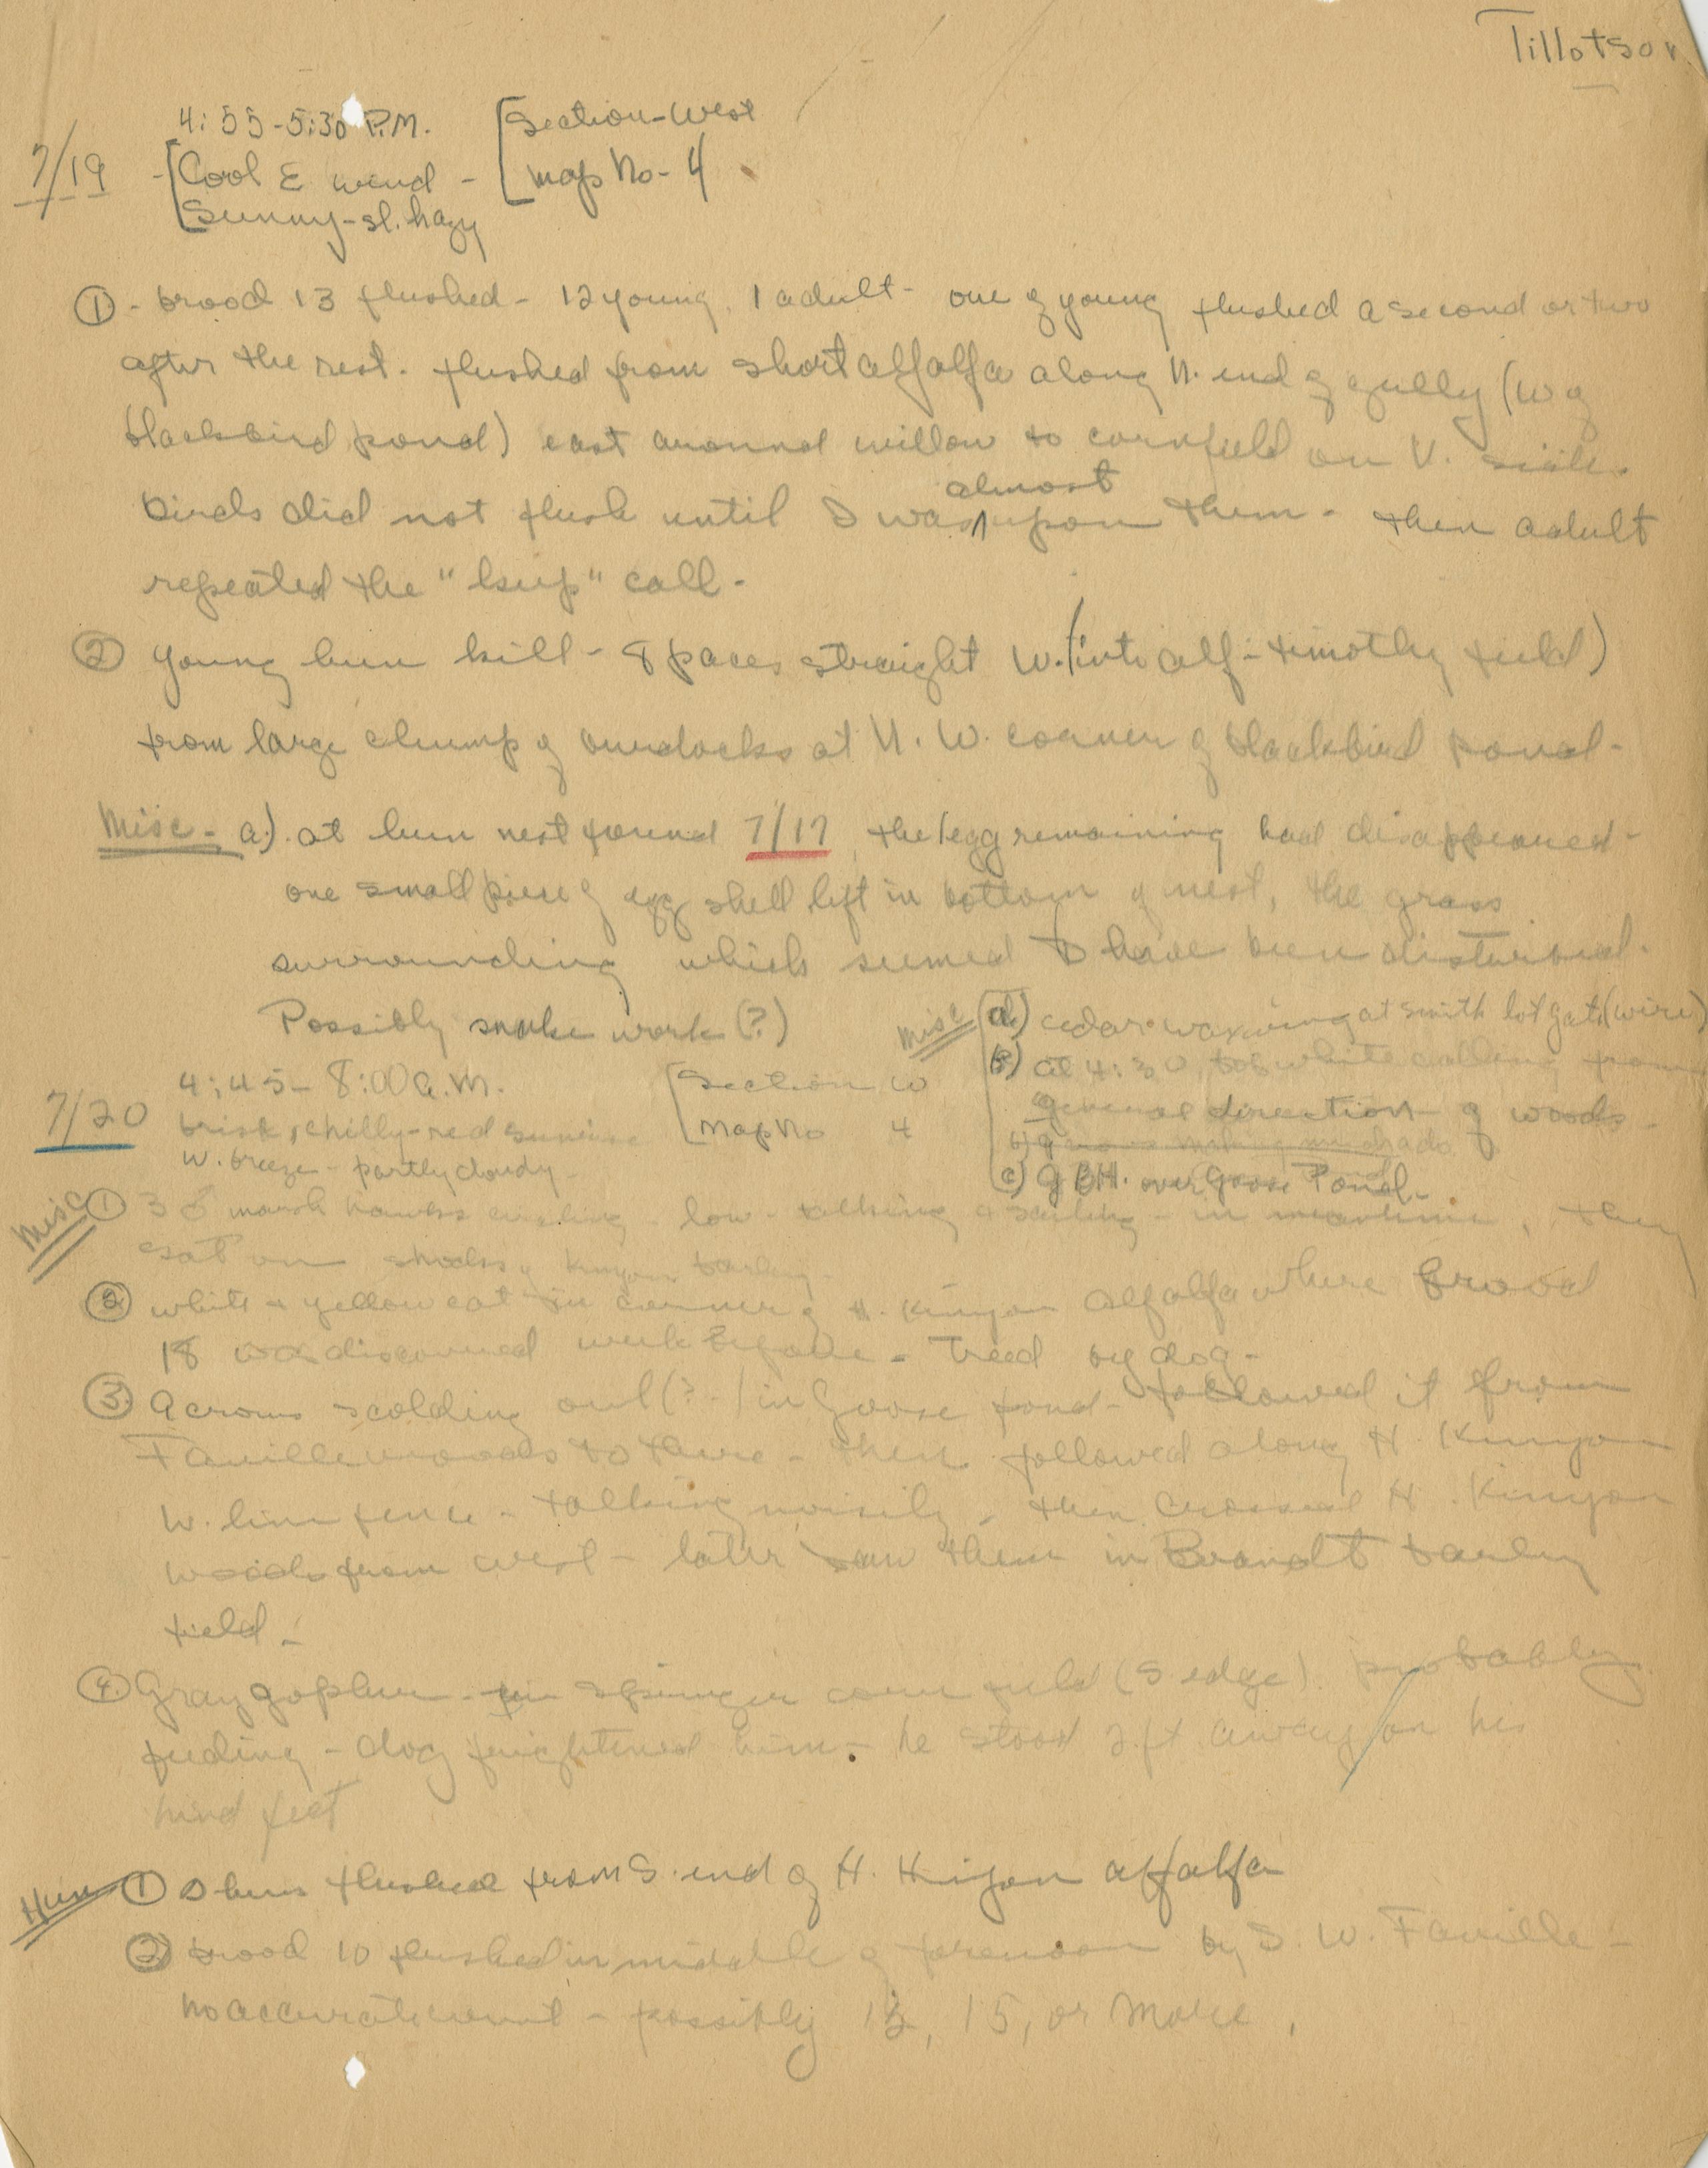 Tillotson
4:55-5:30 P.M. [Section-West
7/19 - [Cool E wind - map No-4
Sunny-sl. hazy
① - brood 13 flushed - 12 young, 1 adult - one of young flushed a second or two
after the rest. flushed from short alfalfa along N. end of gully (W of
blackbird pond) east around willow to cornfield on N. side.
almost
birds did not flush until I was ^ upon them - then adult
repeated the "keep" call -
② young hun kill - 8 paces straight W. (into alf - timothy field)
from large clump of burdocks at N. W. corner of blackbird pond -
Misc - a.) at hun nest found 7/17 the 1 egg remaining had disappeared -
one small piece of egg shell left in bottom of nest, the grass
surrounding which seemed to have been disturbed.
Possibly snake work (?)
Misc [a) cedar waxwing at Smith lot gate (wire)
b) at 4:30 bob white calling from
general direction of woods
c) GBH. over Goose Pond -
4:45 - 8:00 a.m. [Section W
7/20 brisk, chilly - red sunrise Map No 4
W. breeze - partly cloudy -
Misc ① 3 ♂ marsh hawks circling - low - talking & sailing - in meantime, they
sat on shocks of Kinyon barley -
② white & yellow cat in corner of H. Kinyon alfalfa where brood
18 was discovered week before - Treed by dog -
③ 9 crows scolding owl (? -) in Goose pond - followed it from
Faville woods to there - then followed along H. Kinyon
W. line fence - talking noisily - then crossed H. Kinyon
woods from west - later saw them in Brandt barley
field -
④ Gray gopher - in Springer corn field (S edge) probably
feeding - dog frightened him - he stood 2 ft away on his
hind feet
Hun ① huns flushed from S. end of H. Kinyon alfalfa
② brood 10 flushed in middle of forenoon by S. W. Faville -
no accurate count - possibly 13, 15, or more.